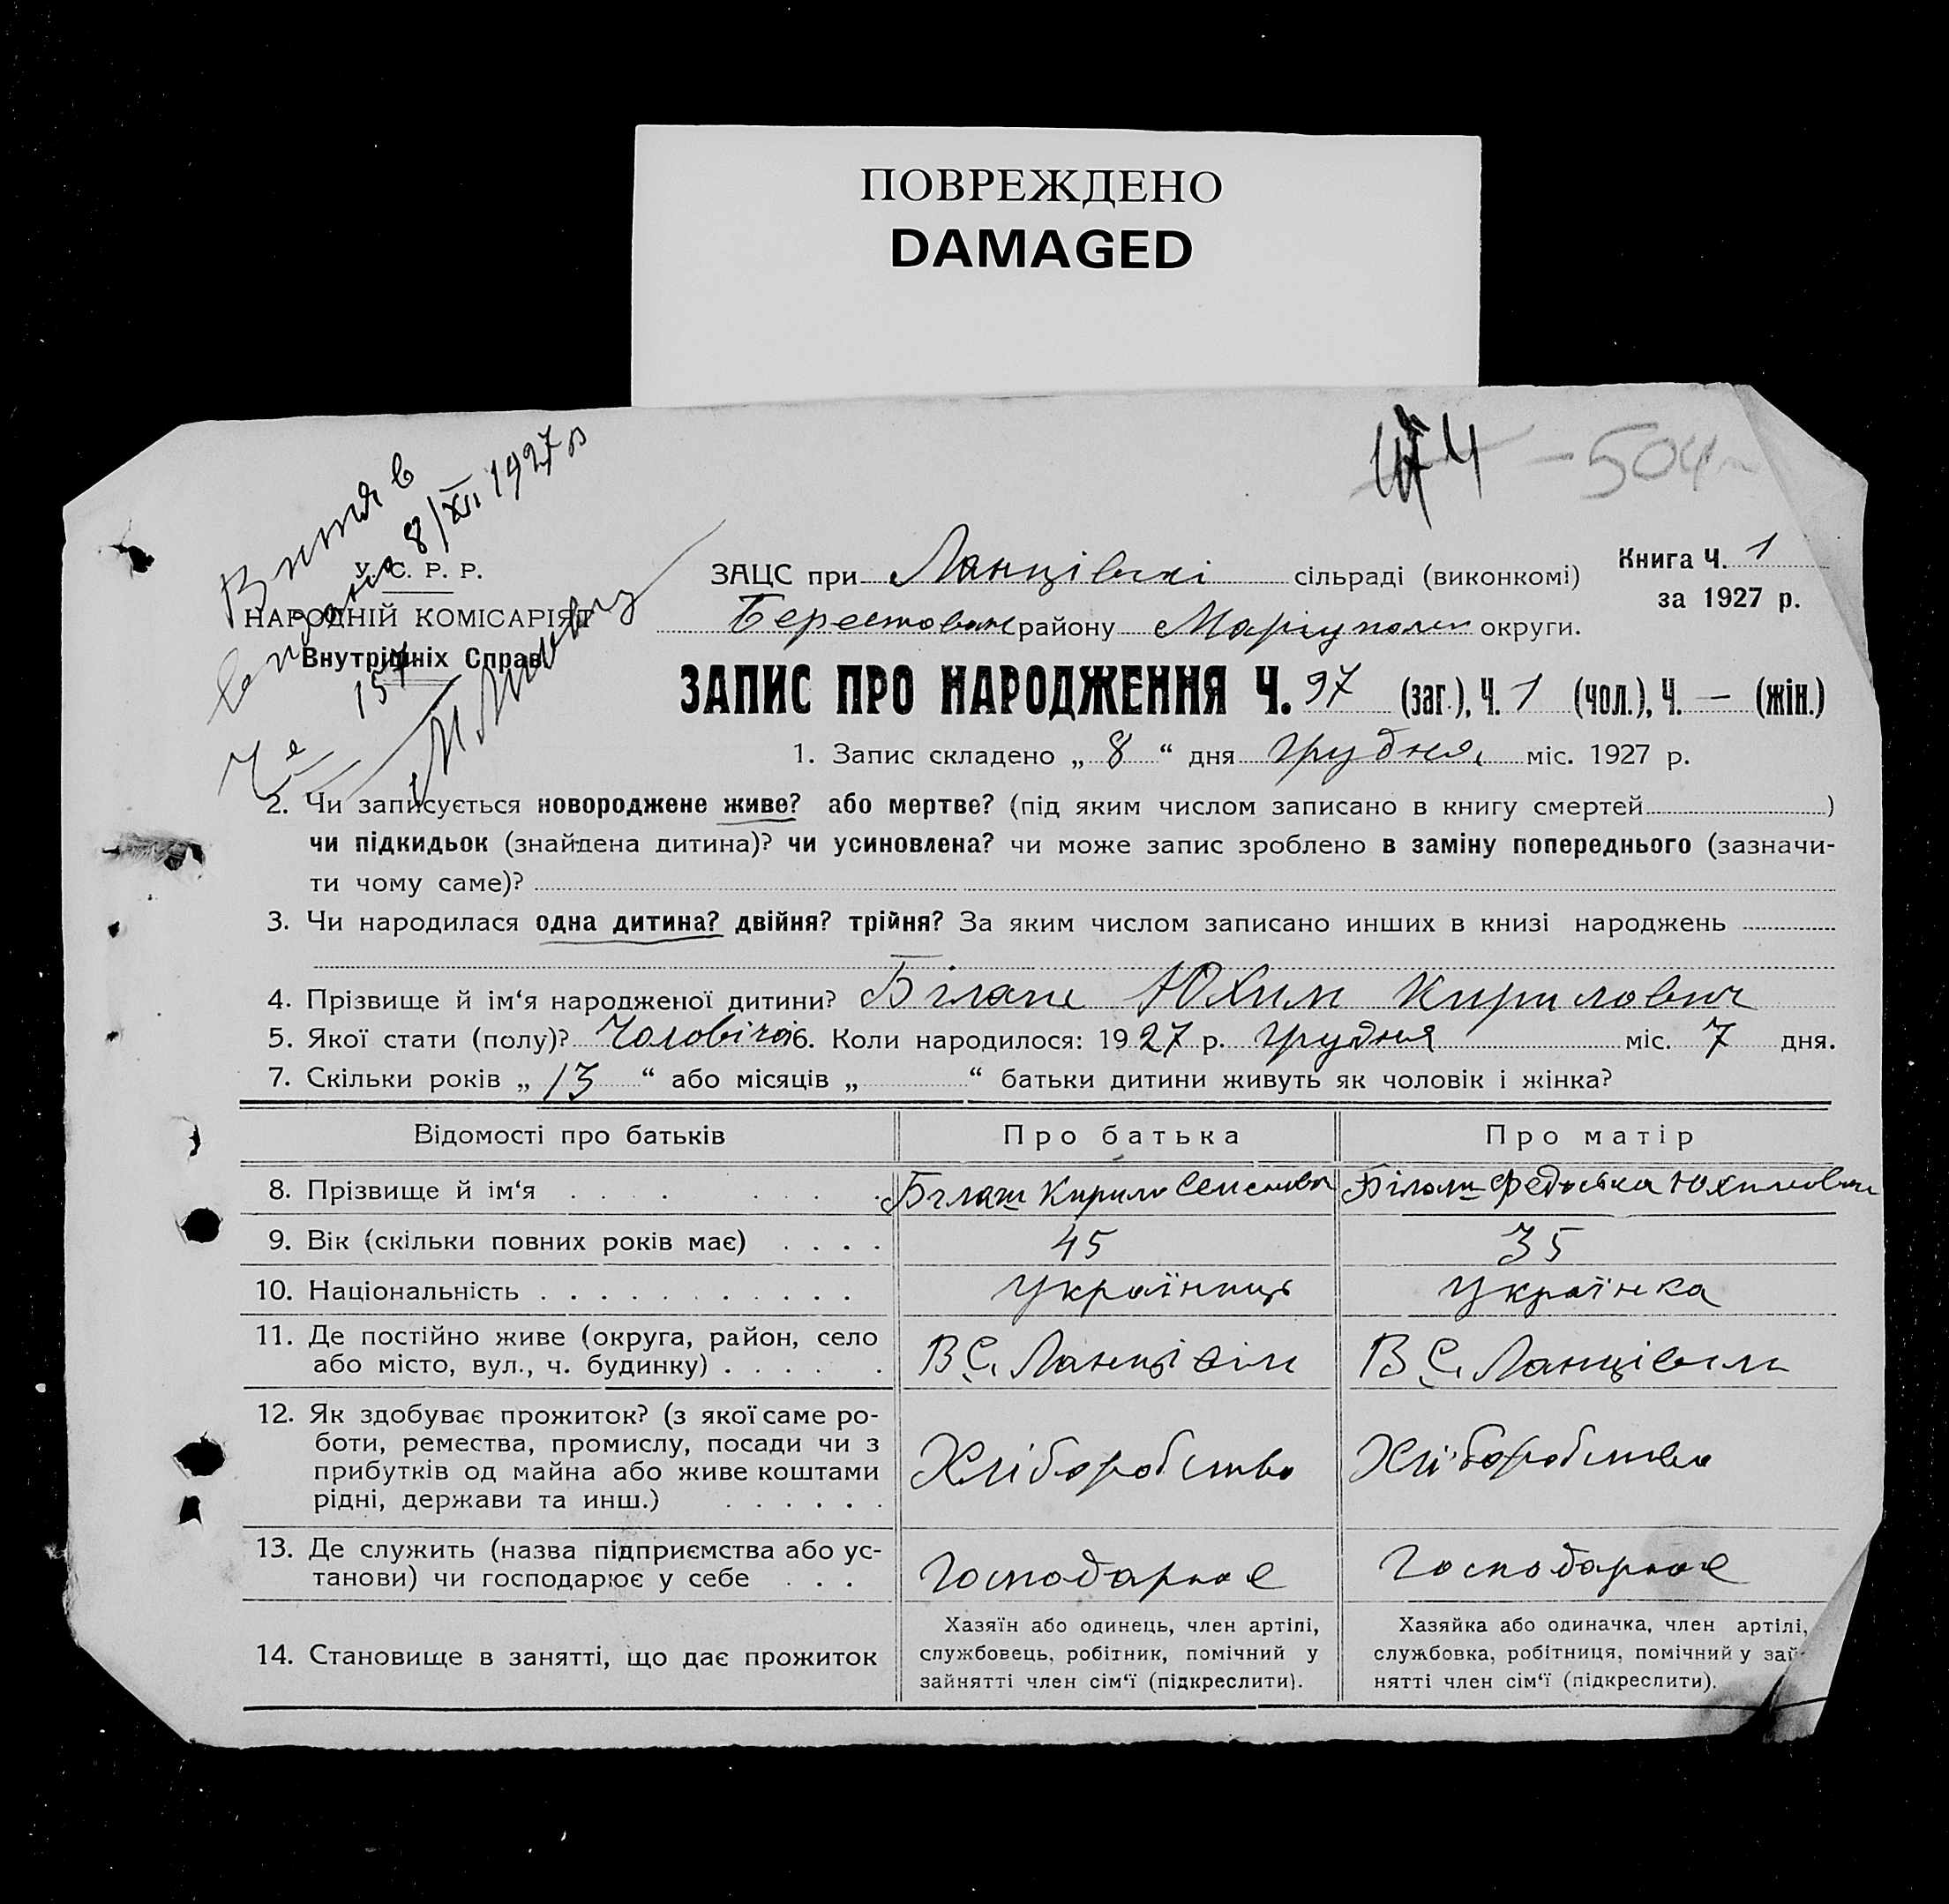 ПОВРЕЖДЕНО
DAMAGED
174 – 504
Витяг в
8/XII 1927 р
157
У. С. Р. Р.
НАРОДНІЙ КОМІСАРІЯТ
Внутрішніх Справ
ЗАЦС при Ланцівскі сільраді (виконкомі)
Книга Ч. 1
за 1927 р.
Берестован району Маріуполь округи.
ЗАПИС ПРО НАРОДЖЕННЯ Ч. 97 (заг.), Ч. 1 (чол.), Ч. — (жін.)
1. Запис складено „ 8 “ дня грудня міс. 1927 р.
2. Чи записується новороджене живе? або мертве? (під яким числом записано в книгу смертей )
чи підкидьок (знайдена дитина)? чи усиновлена? чи може запис зроблено в заміну попереднього (зазначи-
ти чому саме)?
3. Чи народилася одна дитина? двійня? трійня? За яким числом записано инших в книзі народжень
4. Прізвище й ім‘я народженої дитини? Білаш Юхим Кирилович
5. Якої стати (полу)? Чоловічої 6. Коли народилося: 1927 р. грудня міс. 7 дня.
7. Скільки років „ 13 “ або місяців „ “ батьки дитини живуть як чоловік і жінка?
Відомості про батьків Про батька Про матір
8. Прізвище й ім‘я Білаш Кирило Семенович Білаш Федоська Юхимовна
9. Вік (скільки повних років має) 45 35
10. Національність Українець Українка
11. Де постійно живе (округа, район, село
або місто, вул., ч. будинку) В С. Ланцівім В С. Ланцівім
12. Як здобуває прожиток? (з якої саме ро-
боти, ремества, промислу, посади чи з
прибутків од майна або живе коштами
рідні, держави та инш.) Хліборобство Хліборобство
13. Де служить (назва підприємства або ус-
танови) чи господарює у себе Господарює Господарює
14. Становище в занятті, що дає прожиток
Хазяїн або одинець, член артілі,
службовець, робітник, помічний у
зайнятті член сім‘ї (підкреслити).
Хазяйка або одиначка, член артілі,
службовка, робітниця, помічний у зай-
нятті член сім‘ї (підкреслити).